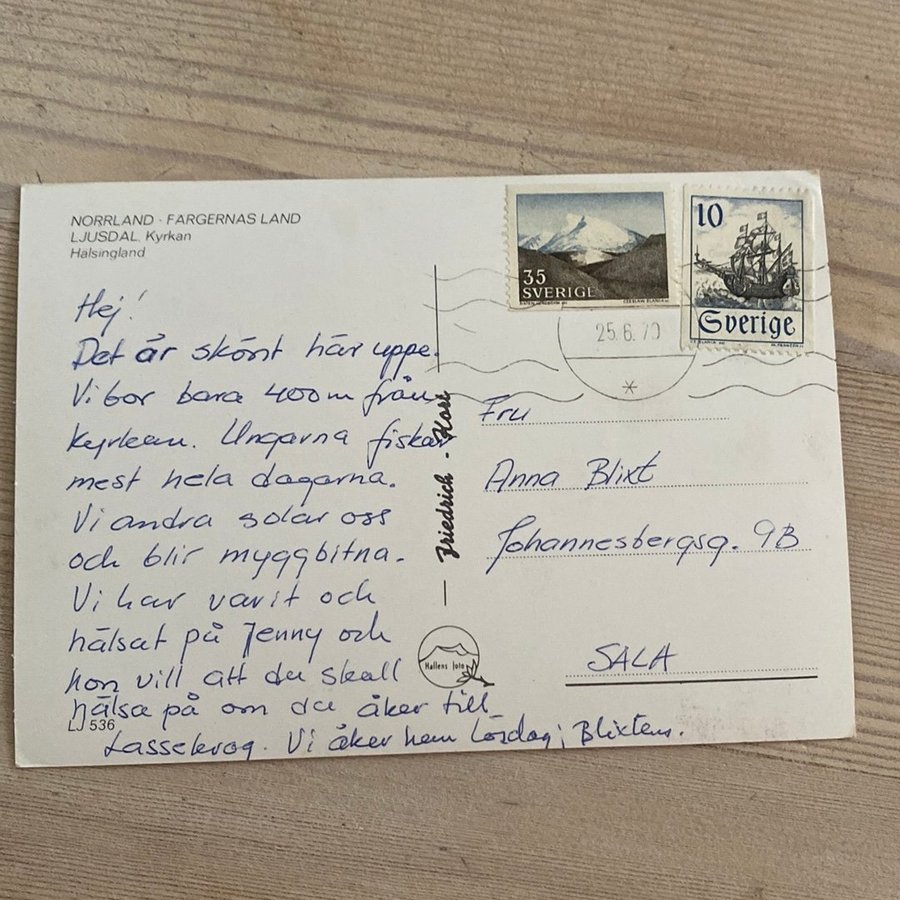 NORRLAND · FÄRGERNAS LAND
LJUSDAL. Kyrkan
Hälsingland
Hej!
Det är skönt här uppe.
Vi bor bara 400m från
kyrkan. Ungarna fiskar
mest hela dagarna.
Vi andra solar oss
och blir myggbitna.
Vi har varit och
hälsat på Jenny och
hon vill att du skall
hälsa på om du åker till
Lassekrog. Vi åker hem Lördag; Blixtens.
LJ 536
Friedrich - Kort
Hallens foto
35
SVERIGE
CZESLAW SLANIA sc
10
Sverige
25.6.70
Fru
Anna Blixt
Johannesbergsg. 9B
SALA